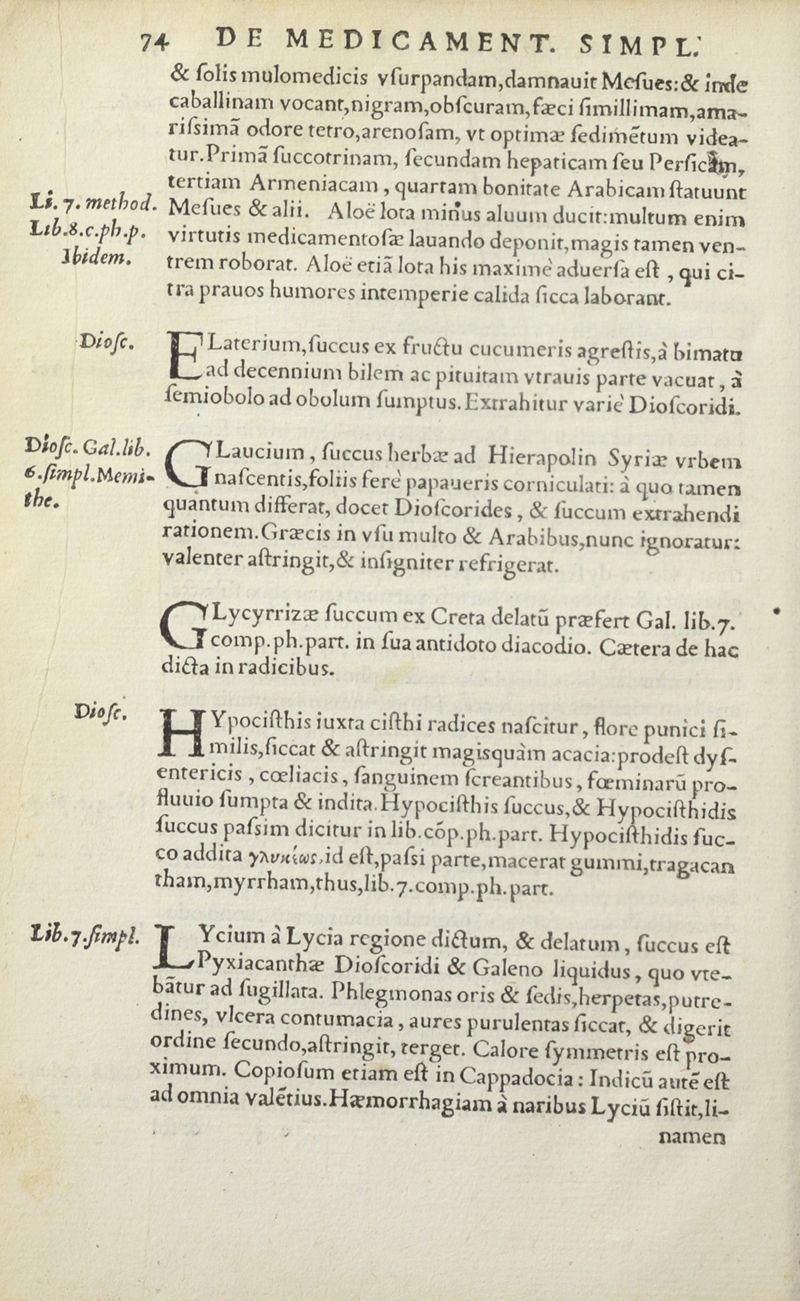 74 DE MEDICAMENT. SIMPL.
& ſolis mulomedicis vſurpandam,damnauit Meſues:& inde
caballinam vocant,nigram,obſcuram,fæci ſimillimam,ama-
riſsimã odore tetro,arenoſam, vt optimæ ſedimẽtum videa-
tur.Primã ſuccotrinam, ſecundam hepaticam ſeu Perſicam,
tertiam Armeniacam , quartam bonitate Arabicam ſtatuunt
Li. 7. method. Meſues & alii. Aloë lota minus aluum ducit:multum enim
Lib.8.c.ph.p. virtutis medicamentoſæ lauando deponit,magis tamen ven-
Ibidem. trem roborat. Aloë etiã lota his maximè aduerſa eſt , qui ci-
tra prauos humores intemperie calida ſicca laborant.
Dioſc. ELaterium,ſuccus ex fructu cucumeris agreſtis,à bimatu
ad decennium bilem ac pituitam vtrauis parte vacuat, à
ſemiobolo ad obolum ſumptus.Extrahitur variè Dioſcoridi.
Dioſc. Gal.lib. GLaucium, ſuccus herbæ ad Hierapolin Syriæ vrbem
6.ſimpl.Memi- naſcentis,foliis ferè papaueris corniculati: à quo tamen
the. quantum differat, docet Dioſcorides, & ſuccum extrahendi
rationem.Græcis in vſu multo & Arabibus,nunc ignoratur:
valenter aſtringit,& inſigniter refrigerat.
GLycyrrizæ ſuccum ex Creta delatũ præfert Gal. lib.7.
comp.ph.part. in ſua antidoto diacodio. Cætera de hac
dicta in radicibus.
Dioſc. HYpociſthis iuxta ciſthi radices naſcitur, flore punici ſi-
milis,ſiccat & aſtringit magisquàm acacia:prodeſt dyſ-
entericis , cœliacis, ſanguinem ſcreantibus, fœminarũ pro-
fluuio ſumpta & indita.Hypociſthis ſuccus,& Hypociſthidis
ſuccus paſsim dicitur in lib.cõp.ph.part. Hypociſthidis ſuc-
co addita γλυκέως,id eſt,paſsi parte,macerat gummi,tragacan
tham,myrrham,thus,lib.7.comp.ph.part.
Lib.7.ſimpl. LYcium à Lycia regione dictum, & delatum, ſuccus eſt
Pyxiacanthæ Dioſcoridi & Galeno liquidus, quo vte-
batur ad ſugillata. Phlegmonas oris & ſedis,herpetas,putre-
dines, vlcera contumacia, aures purulentas ſiccat, & digerit
ordine ſecundo,aſtringit, terget. Calore ſymmetris eſt pro-
ximum. Copioſum etiam eſt in Cappadocia: Indicũ autẽ eſt
ad omnia valẽtius.Hæmorrhagiam à naribus Lyciũ ſiſtit,li-
namen